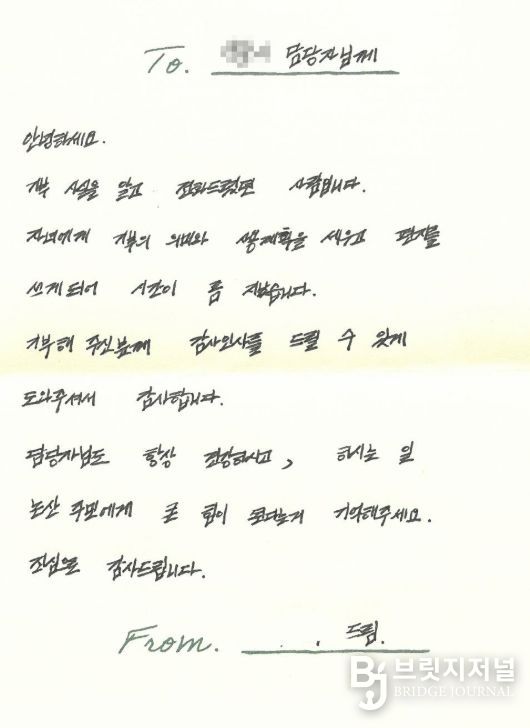 To. 담당자님께
안녕하세요.
기부 사실을 알고 전화드렸던 사람입니다.
자녀에게 기부의 의미와 사용계획을 세우고 편지를
쓰게되어 시간이 좀 지났습니다.
기부해 주신분께 감사인사를 드릴 수 있게
도와주셔서 감사합니다.
담당자님도 항상 건강하시고, 하시는 일
논산 주민에게 큰 힘이 된다는거 기억해주세요.
진심으로 감사드립니다.
From. . . 드림.
브릿지저널
BRIDGE JOURNAL